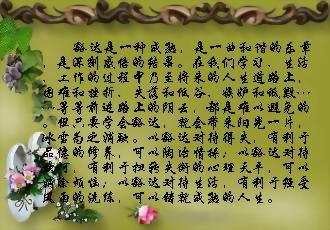 豁达是一种成熟，是一曲和谐的乐章
，是深刻感悟的结果。在我们学习、生活
、工作的过程中乃至将来的人生道路上，
困难和挫折、失落和低谷、嫉妒和诋毁…
…等等前进路上的阴云，都是难以避免的
。但只要学会豁达，就会带来阳光一片，
冰雪为之消融。以豁达对待得失，有利于
品德的修养，可以陶冶情操；以豁达对待
，有利于扭转失衡的心理天平，可以
消除烦恼；以豁达对待生活，有利于经受
风雨的洗练，可以铸就成熟的人生。